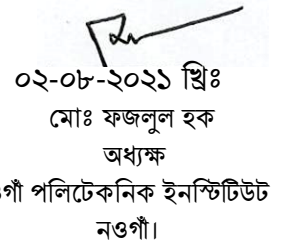 ০২-০৮-২০২১ খ্রিঃ
মোঃ ফজলুল হক
অধ্যক্ষ
পলিটেকনিক ইনস্টিটিউট
নওগাঁ।